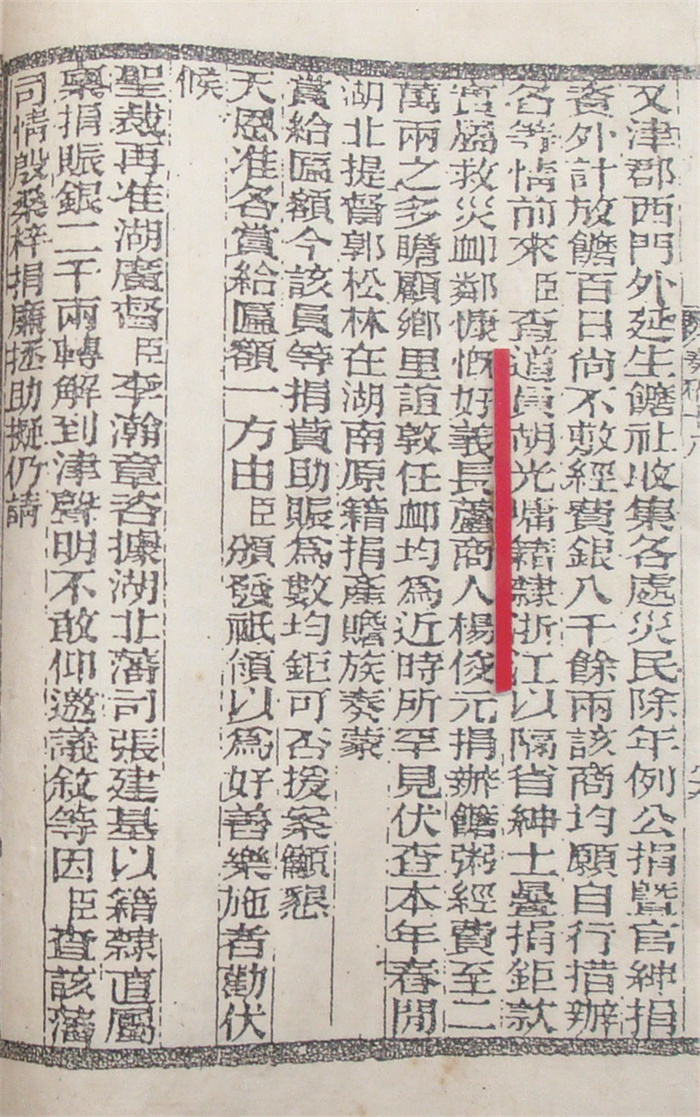 又津郡西門外延生饍社收集各處災民除年例公捐曁官紳捐
資外計放饍百日尙不敷經費銀八千餘兩該商均願自行措辦
各等情前來臣查道員胡光墉籍隸浙江以隔省紳士疊捐鉅款
實屬救災卹鄰慷慨好義長蘆商人楊俊元捐辦饍粥經費至二
萬兩之多瞻顧鄉里誼敦任卹均爲近時所罕見伏查本年春閒
湖北提督郭松林在湖南原籍捐產贍族奏蒙
賞給匾額今該員等捐貲助賑爲數均鉅可否援案籲懇
天恩准各賞給匾額一方由臣頒發祇領以爲好善樂施者勸伏
候
聖裁再准湖廣督臣李瀚章咨據湖北藩司張建基以籍隸直屬
稟捐賑銀二千兩轉解到津聲明不敢仰邀議敘等因臣查該藩
司情殷桑梓捐廉拯助擬仍請